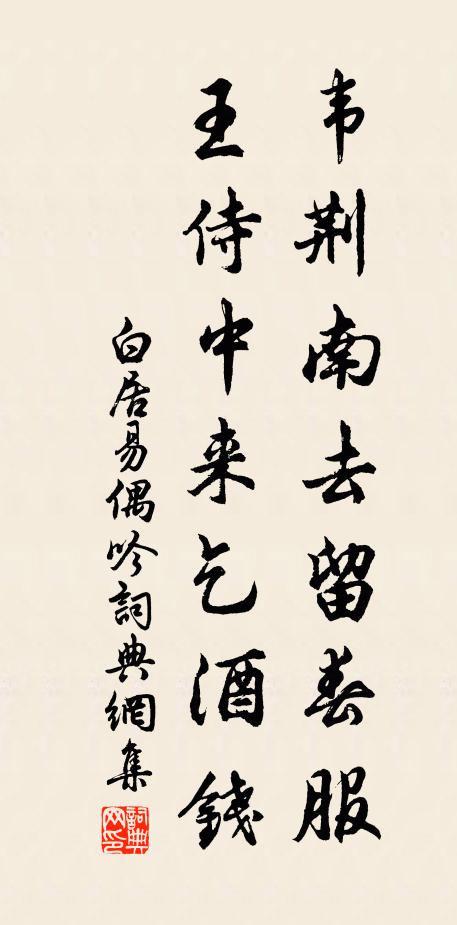 韦荆南去留春服
王侍中来乞酒钱
白居易偶吟詞典網集
詞典网印